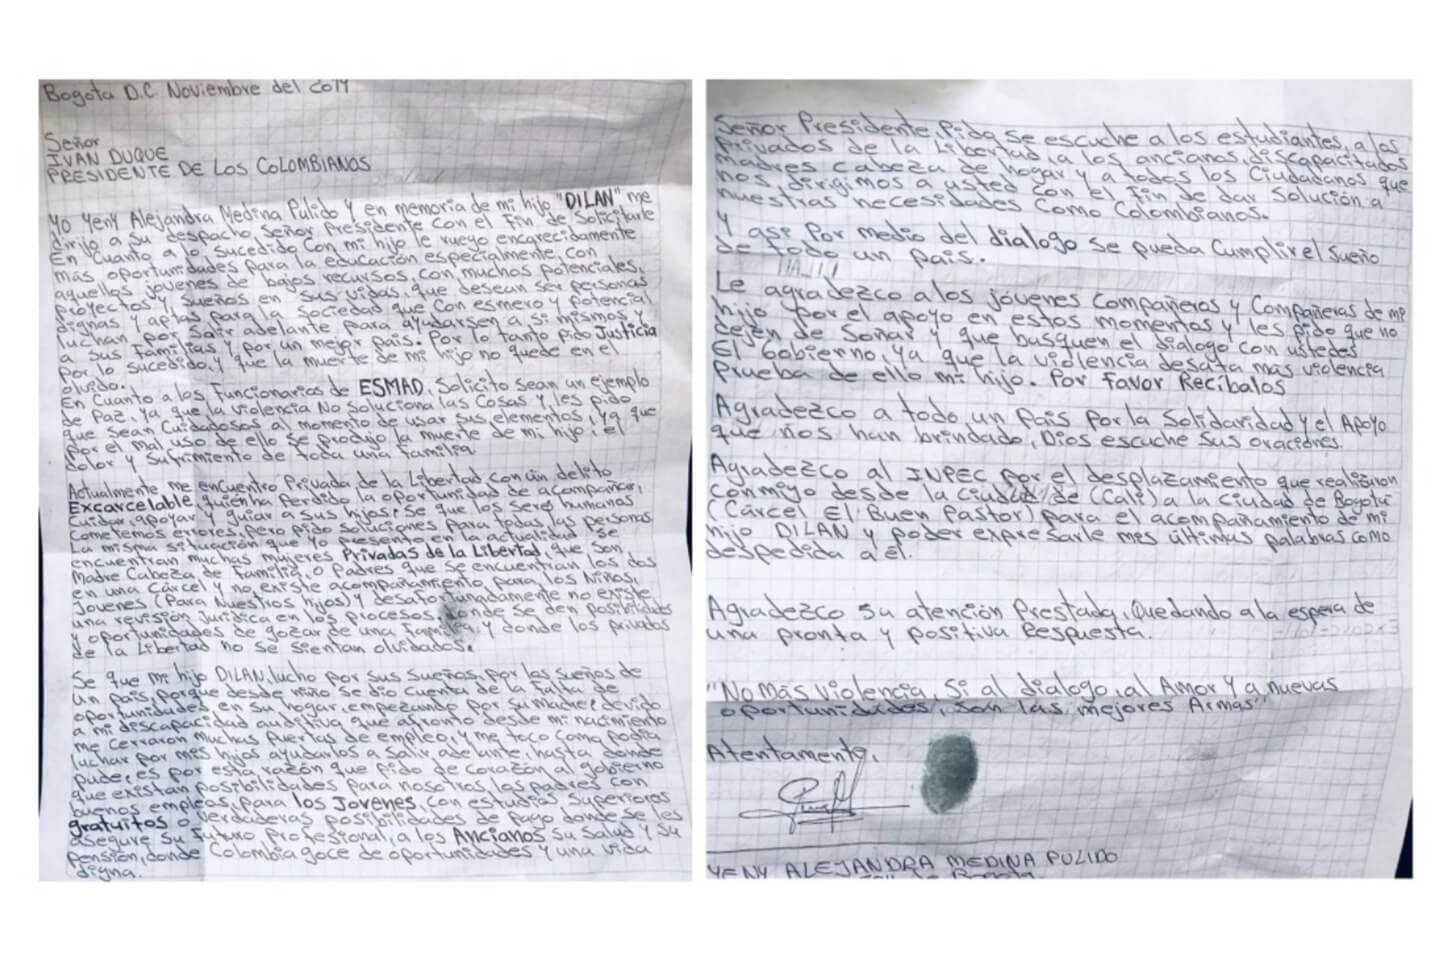 Bogota D.C. Noviembre del 2019
Señor
IVAN DUQUE
PRESIDENTE DE LOS COLOMBIANOS
Yo Yeny Alejandra Medina Pulido y en memoria de mi hijo "DILAN" me
dirijo a su despacho Señor Presidente con el Fin de Solicitarle
En Cuanto a lo sucedido Con mi hijo le ruego encarecidamente
más oportunidades para la educación especialmente, con
aquellos jovenes de bajos recursos, con muchos potenciales,
proyectos y sueños en sus vidas, que desean ser personas
dignas y aptas para la Sociedad que Con esmero y potencial
luchan por salir adelante para ayudarsen a si mismos y
a sus familias y por un mejor pais. Por lo tanto pido Justicia
por lo sucedido, y que la muerte de mi hijo no quede en el
olvido.
En Cuanto a los Funcionarios de ESMAD, Solicito sean un ejemplo
de Paz, ya que la violencia No Soluciona las Cosas y les pido
que sean Cuidadosos al momento de usar sus elementos, ya que
por el mal uso de ello se produjo la muerte de mi hijo; el
dolor y Sufrimiento de toda una familia.
Actualmente me encuentro Privada de la Libertad con un delito
Excarcelable, quien ha Perdido la oportunidad de acompañar,
Cuidar, apoyar y guiar a sus hijos; Se que los seres humanos
Cometemos errores, pero pido soluciones para todas las personas
La misma situación que yo presento en la actualidad se
encuentran muchas mujeres Privadas de la Libertad, que son
Madre Cabeza de familia, o Padres que se encuentran los dos
en una Cárcel y no existe acompañamiento para los Niños,
Jovenes (Para Nuestros hijos) y desafortunadamente no existe
una revisión Juridica en los procesos, donde se den posibilidades
y oportunidades de gozar de una familia, y donde los privados
de la Libertad no se sientan olvidados.
Se que mi hijo DILAN, lucho por sus sueños, por los sueños de
un pais, porque desde niño se dio cuenta de la falta de
oportunidades en su hogar, empezando por su madre, devido
a mi discapacidad auditiva que afronto desde mi nacimiento
me Cerraron muchas puertas de empleo, y me toco Como podia
luchar por mis hijos ayudarlos a Salir adelante, hasta donde
pude, es por esta razón que pido de Corazón al gobierno
que existan posibilidades para nosotros los padres con
buenos empleos, para los Jovenes, con estudios Superiores
gratuitos o verdaderas posibilidades de pago donde se les
asegure su futuro Profesional, a los Ancianos su salud y su
pensión, donde Colombia goce de oportunidades y una vida
digna.
Señor Presidente, Pido se escuche a los estudiantes, a los
privados de la Libertad, a los ancianos, discapacitados
madres cabeza de hogar y a todos los Ciudadanos que
nos dirigimos a usted con el fin de dar Solución a
nuestras necesidades Como Colombianos.
Y asi Por medio del dialogo se pueda Cumplir el Sueño
de todo un pais.
Le agradezco a los jóvenes Compañeros y Compañeras de mi
hijo por el apoyo en estos momentos y les pido que no
dejen de Soñar y que busquen el dialogo con ustedes
El Gobierno, ya que la violencia desata mas violencia
Prueba de ello mi hijo. Por Favor Recíbalos
Agradezco a todo un Pais Por la Solidaridad y el Apoyo
que nos han brindado, Dios escuche Sus oraciones.
Agradezco al INPEC por el desplazamiento que realizaron
Conmigo desde la ciudad de (Cali) a la Ciudad de Bogotá
(Cárcel El Buen Pastor) para el acompañamiento de mi
hijo DILAN y poder expresarle mis últimas palabras como
despedida a él.
Agradezco su atención Prestada, Quedando a la espera de
una pronta y positiva Respuesta.
"No más violencia, Si al dialogo, al Amor y a nuevas
oportunidades, Son las mejores Armas"
Atentamente,
YENY ALEJANDRA MEDINA PULIDO